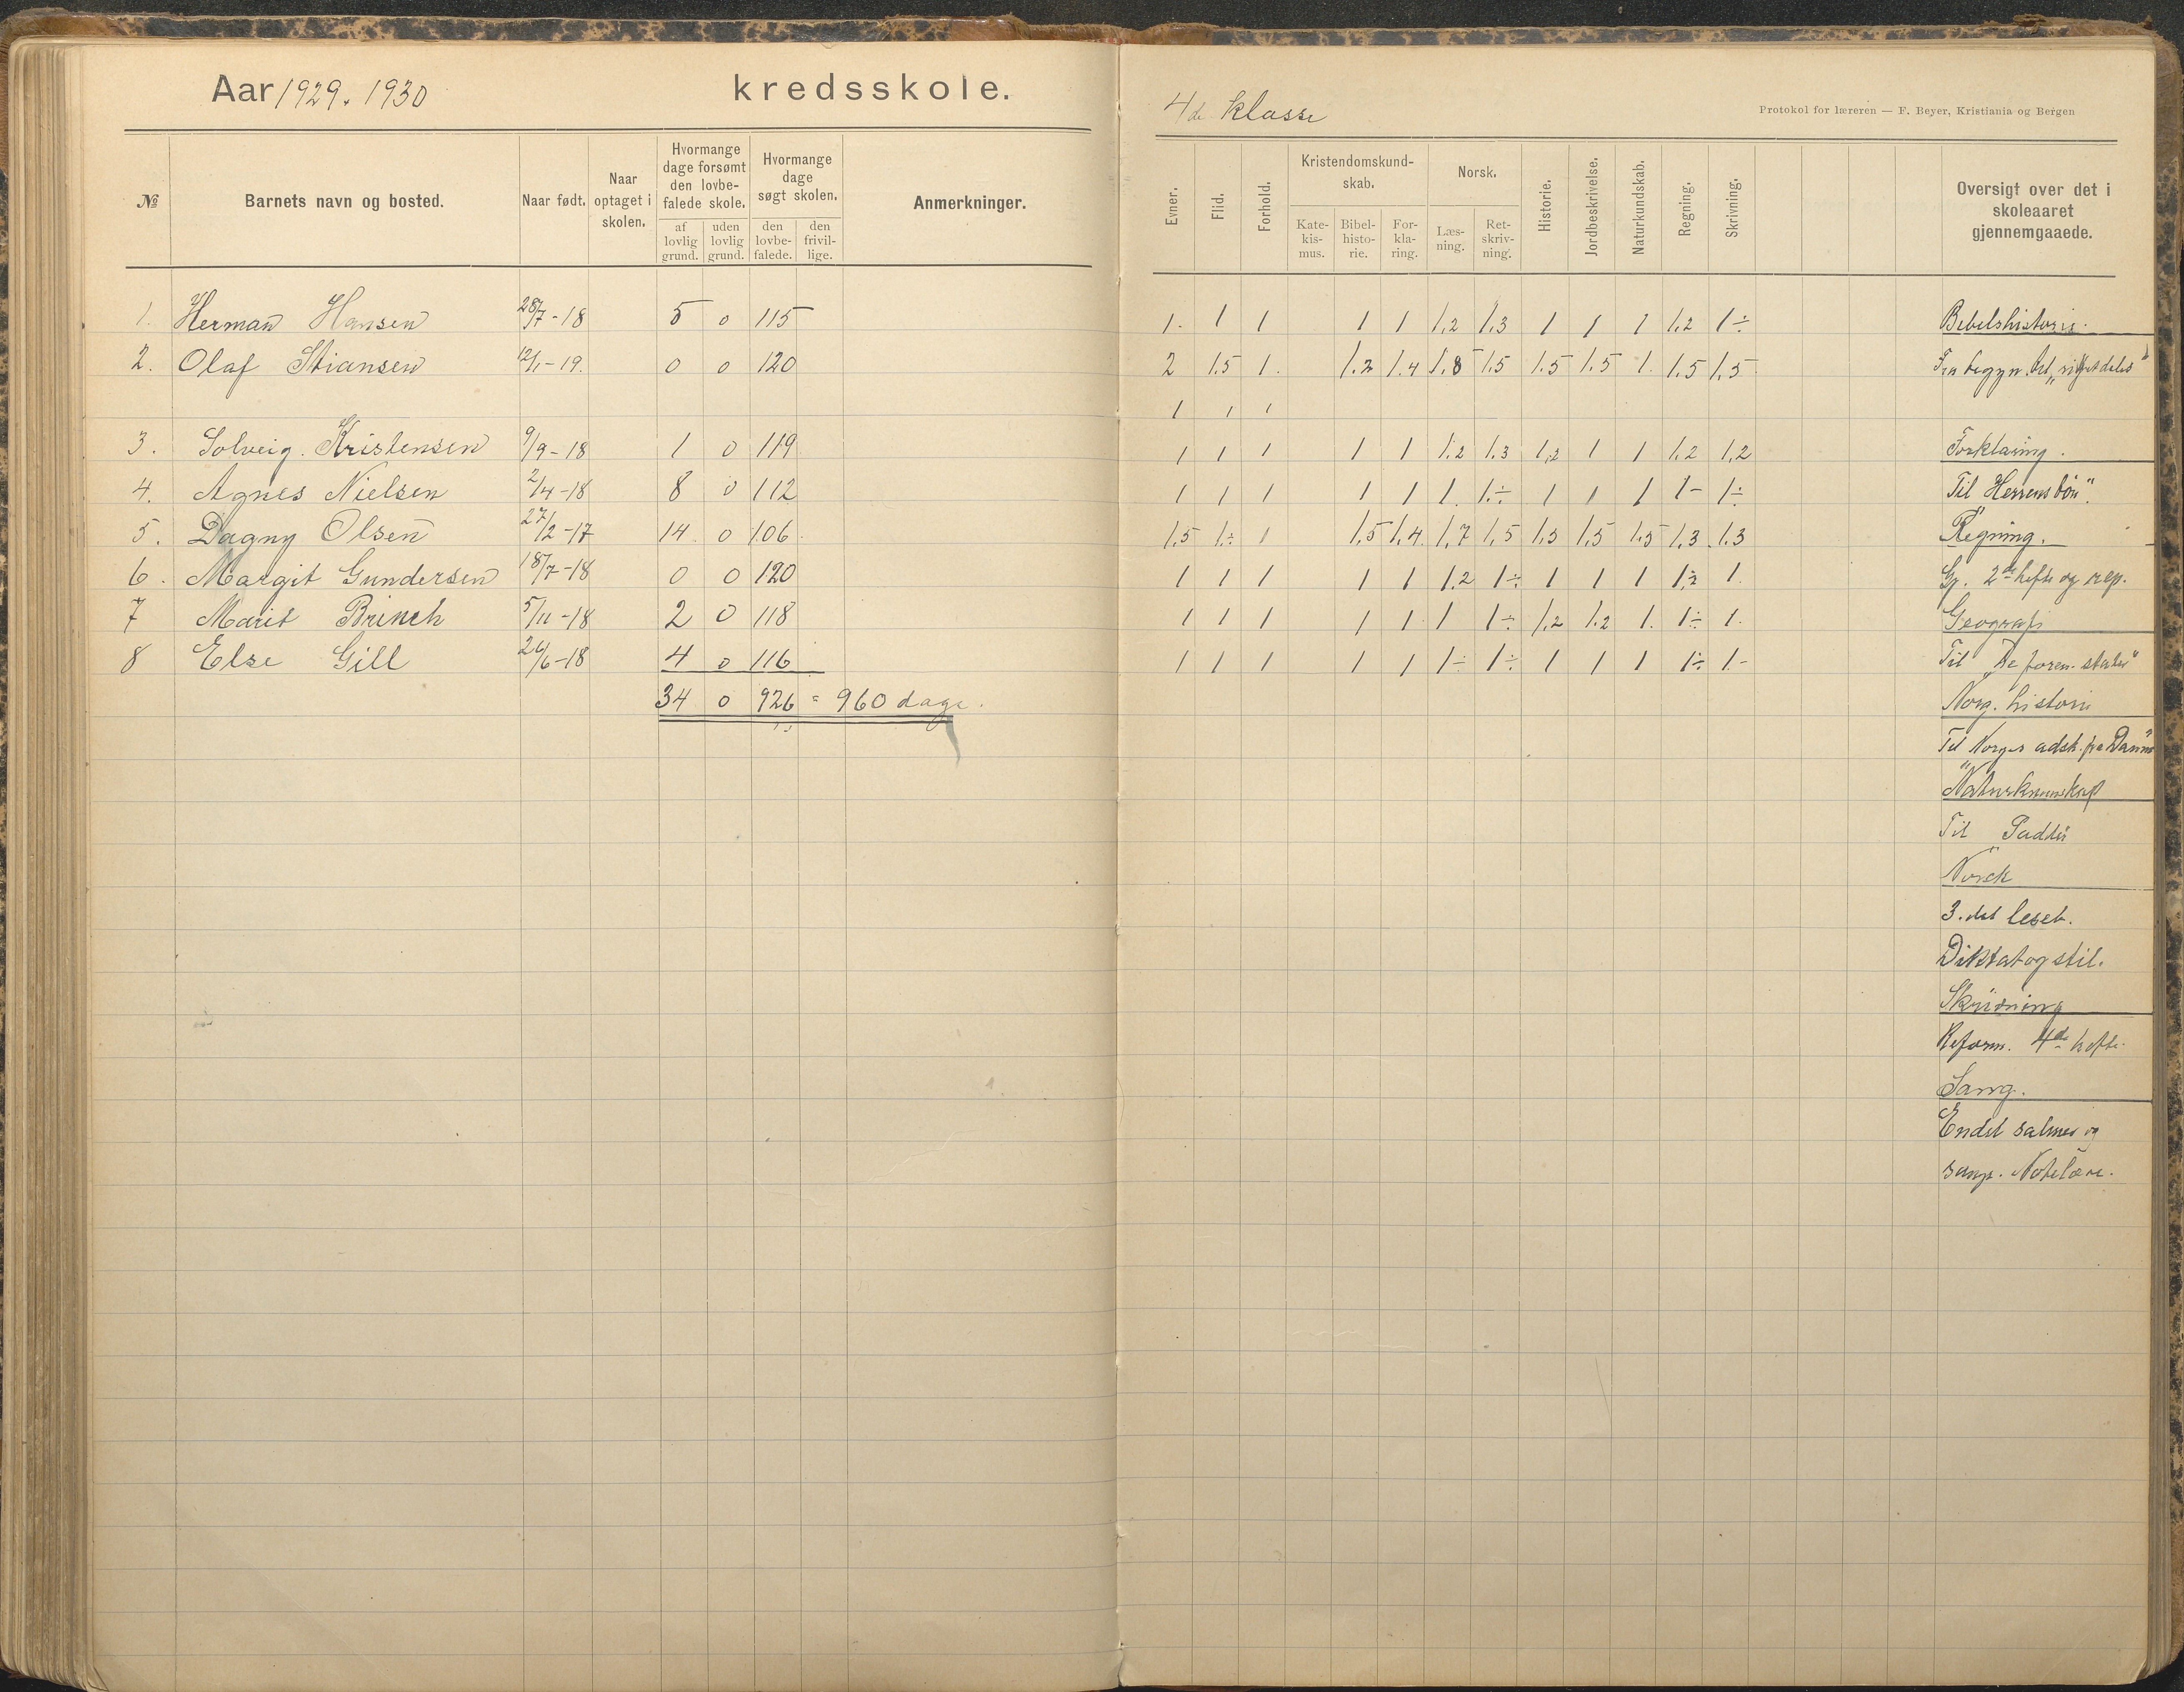 Aar 1929. 1930 kredsskole.
№ Barnets navn og bosted. Naar født. Naar optaget i skolen. Hvormange dage forsømt den lovbefalede skole. af lovlig grund. uden lovlig grund. Hvormange dage søgt skolen. den lovbefalede. den frivillige. Anmerkninger.
1. Herman Hansen 28/7-18 5 0 115
2. Olaf Stiansen 12/1-19. 0 0 120
3. Solveig Kristensen 9/9-18 1 0 119
4. Agnes Nielsen 2/4-18 8 0 112
5. Dagny Olsen 27/2-17 14 0 106
6. Margit Gundersen 18/7-18 0 0 120
7 Marit Brinch 5/11-18 2 0 118
8 Else Gill 26/6-18 4 0 116
34 0 926 = 960 dage.
4de klasse
Protokol for læreren — F. Beyer, Kristiania og Bergen
Evner. Flid. Forhold. Kristendomskundskab. Katekismus. Bibelhistorie. Forklaring. Norsk. Læsning. Retskrivning. Historie. Jordbeskrivelse. Naturkundskab. Regning. Skrivning. Oversigt over det i skoleaaret gjennemgaaede.
1. 1 1 1 1 1,2 1,3 1 1 1 1,2 1÷ Bibelshistorie.
2 1.5 1. 1.2 1.4 1.8 1.5 1.5 1.5 1. 1.5 1.5 Fra begyn. til
1 1 1
1 1 1 1 1 1.2 1.3 1,2 1 1 1.2 1.2 Forklaring.
1 1 1 1 1 1. 1.÷ 1 1 1 1- 1÷ Til Herrens bön".
1.5 1.÷ 1 1.5 1.4. 1.7 1.5 1.5 1.5 1.5 1.3 1.3 Regning.
1 1 1 1 1 1.2 1÷ 1 1 1 1÷ 1. Gj. 2det hefte og rep.
1 1 1 1 1 1 1÷ 1.2 1.2 1. 1÷ 1. Geografi
1 1 1 1 1 1÷ 1÷ 1 1 1 1÷ 1- Til "De foren. stater"
Norg. historie
Til Norges adsk. fra Danm.
Naturkunnskap
Til Padder
Norsk
3.det leseb.
Diktat og stil.
Skrivning
Reform. 4de hefte.
Sang.
Endel salmer og
sange. Notelære.